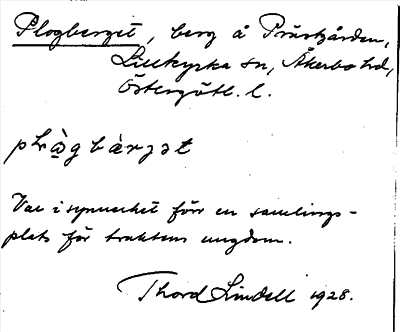 Plogberget, berg å Prästgården,
Lillkyrka sn, Åkerbo hd,
Östergötl. l.
plὼg bàrjət
Var i synnerhet förr en samlings-
plats för traktens ungdom.
Thord Lindell 1928.